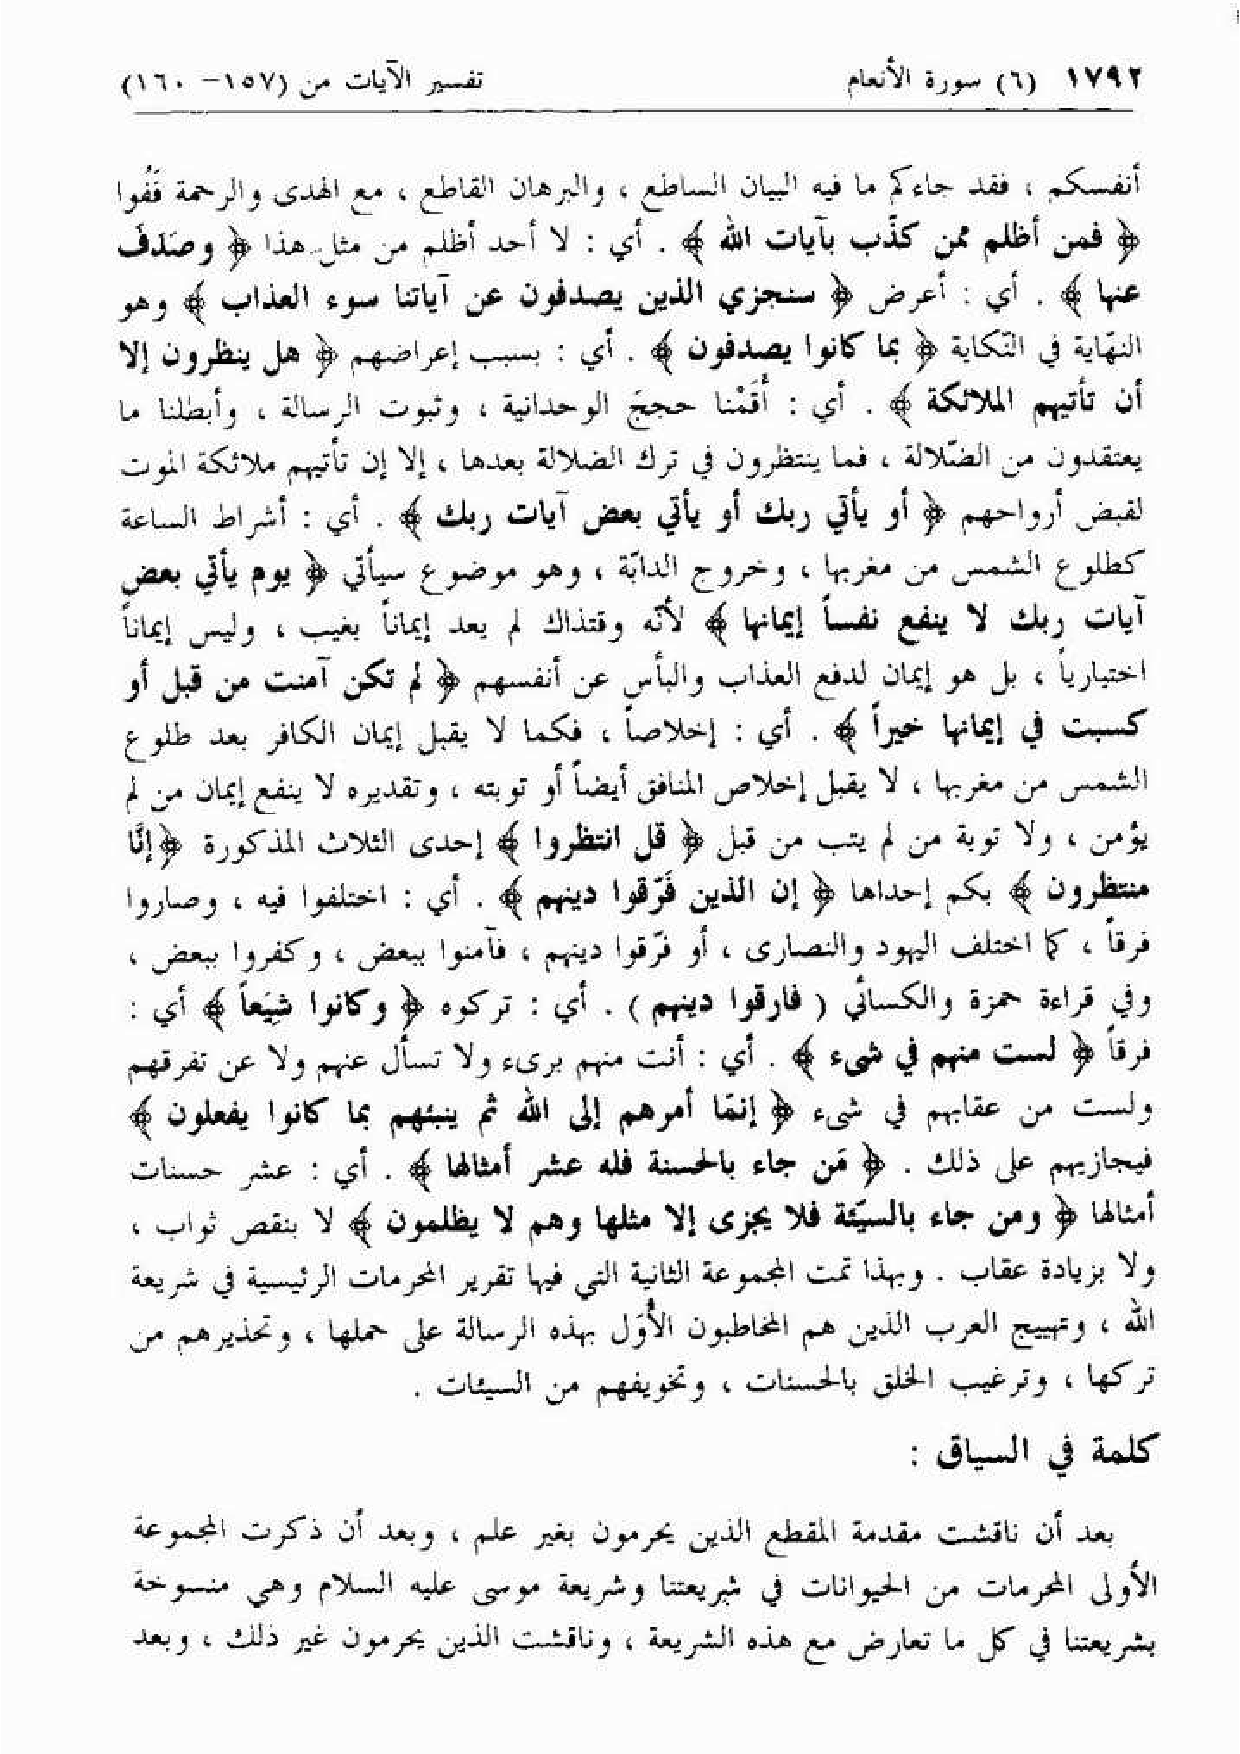 ١٧٩٢ (٦) سورة الأنعام تفسير الآيات من (١٥٧– ١٦٠)
أنفسكم ، فقد جاءكم ما فيه البيان الساطع ، والبرهان القاطع ، مع الهدى والرحمة قَفُوا
﴿ فمن أظلم ممن كذّب بآيات الله ﴾ . أي : لا أحد أظلم من مثل هذا ﴿ وصَدَفَ
عنها ﴾ . أي : أعرض ﴿ سنجزي الذين يصدفون عن آياتنا سوء العذاب ﴾ وهو
النهّاية في النّكاية ﴿ بما كانوا يصدفون ﴾ . أي : بسبب إعراضهم ﴿ هل ينظرون إلا
أن تأتيهم الملائكة ﴾ . أي : أَقَمْنا حججَ الوحدانية ، وثبوت الرسالة ، وأبطلنا ما
يعتقدون من الضّلالة ، فما ينتظرون في ترك الضلالة بعدها ، إلا إن تأتيهم ملائكة الموت
لقبض أرواحهم ﴿ أو يأتي ربك أو يأتي بعض آيات ربك ﴾ . أي : أشراط الساعة
كطلوع الشمس من مغربها ، وخروج الدابّة ، وهو موضوع سيأتي ﴿ يوم يأتي بعض
آيات ربك لا ينفع نفساً إيمانها ﴾ لأنّه وقتذاك لم يعد إيماناً بغيب ، وليس إيماناً
اختيارياً ، بل هو إيمان لدفع العذاب والبأس عن أنفسهم ﴿ لم تكن آمنت من قبل أو
كسبت في إيمانها خيراً ﴾ . أي : إخلاصاً ، فكما لا يقبل إيمان الكافر بعد طلوع
الشمس من مغربها ، لا يقبل إخلاص المنافق أيضاً أو توبته ، وتقديره لا ينفع إيمان من لم
يؤمن ، ولا توبة من لم يتب من قبل ﴿ قل انتظروا ﴾ إحدى الثلاث المذكورة ﴿إنَّا
منتظرون ﴾ بكم إحداها ﴿ إن الذين فَرّقوا دينهم ﴾ . أي : اختلفوا فيه ، وصاروا
فرقاً ، كما اختلف اليهود والنصارى ، أو فرّقوا دينهم ، فآمنوا ببعض ، وكفروا ببعض ،
وفي قراءة حمزة والكسائي ( فارقوا دينهم ) . أي : تركوه ﴿ وكانوا شِيَعاً ﴾ أي :
فرقاً ﴿ لست منهم في شىء ﴾ . أي : أنت منهم برىء ولا تسأل عنهم ولا عن تفرقهم
ولست من عقابهم في شىء ﴿ إنمّا أمرهم إلى الله ثم ينبئهم بما كانوا يفعلون ﴾
فيجازيهم على ذلك . ﴿ مَن جاء بالحسنة فله عشر أمثالها ﴾ . أي : عشر حسنات
أمثالها ﴿ ومن جاء بالسيّئة فلا يجزى إلا مثلها وهم لا يظلمون ﴾ لا بنقص ثواب ،
ولا بزيادة عقاب . وبهذا تمت المجموعة الثانية التي فيها تقرير المحرمات الرئيسية في شريعة
الله ، وتهييج العرب الذين هم المخاطبون الأُوَل بهذه الرسالة على حملها ، وتحذيرهم من
تركها ، وترغيب الخلق بالحسنات ، وتخويفهم من السيئات .
كلمة في السياق :
بعد أن ناقشت مقدمة المقطع الذين يحرمون بغير علم ، وبعد أن ذكرت المجموعة
الأولى المحرمات من الحيوانات في شريعتنا وشريعة موسى عليه السلام وهي منسوخة
بشريعتنا في كل ما تعارض مع هذه الشريعة ، وناقشت الذين يحرمون غير ذلك ، وبعد